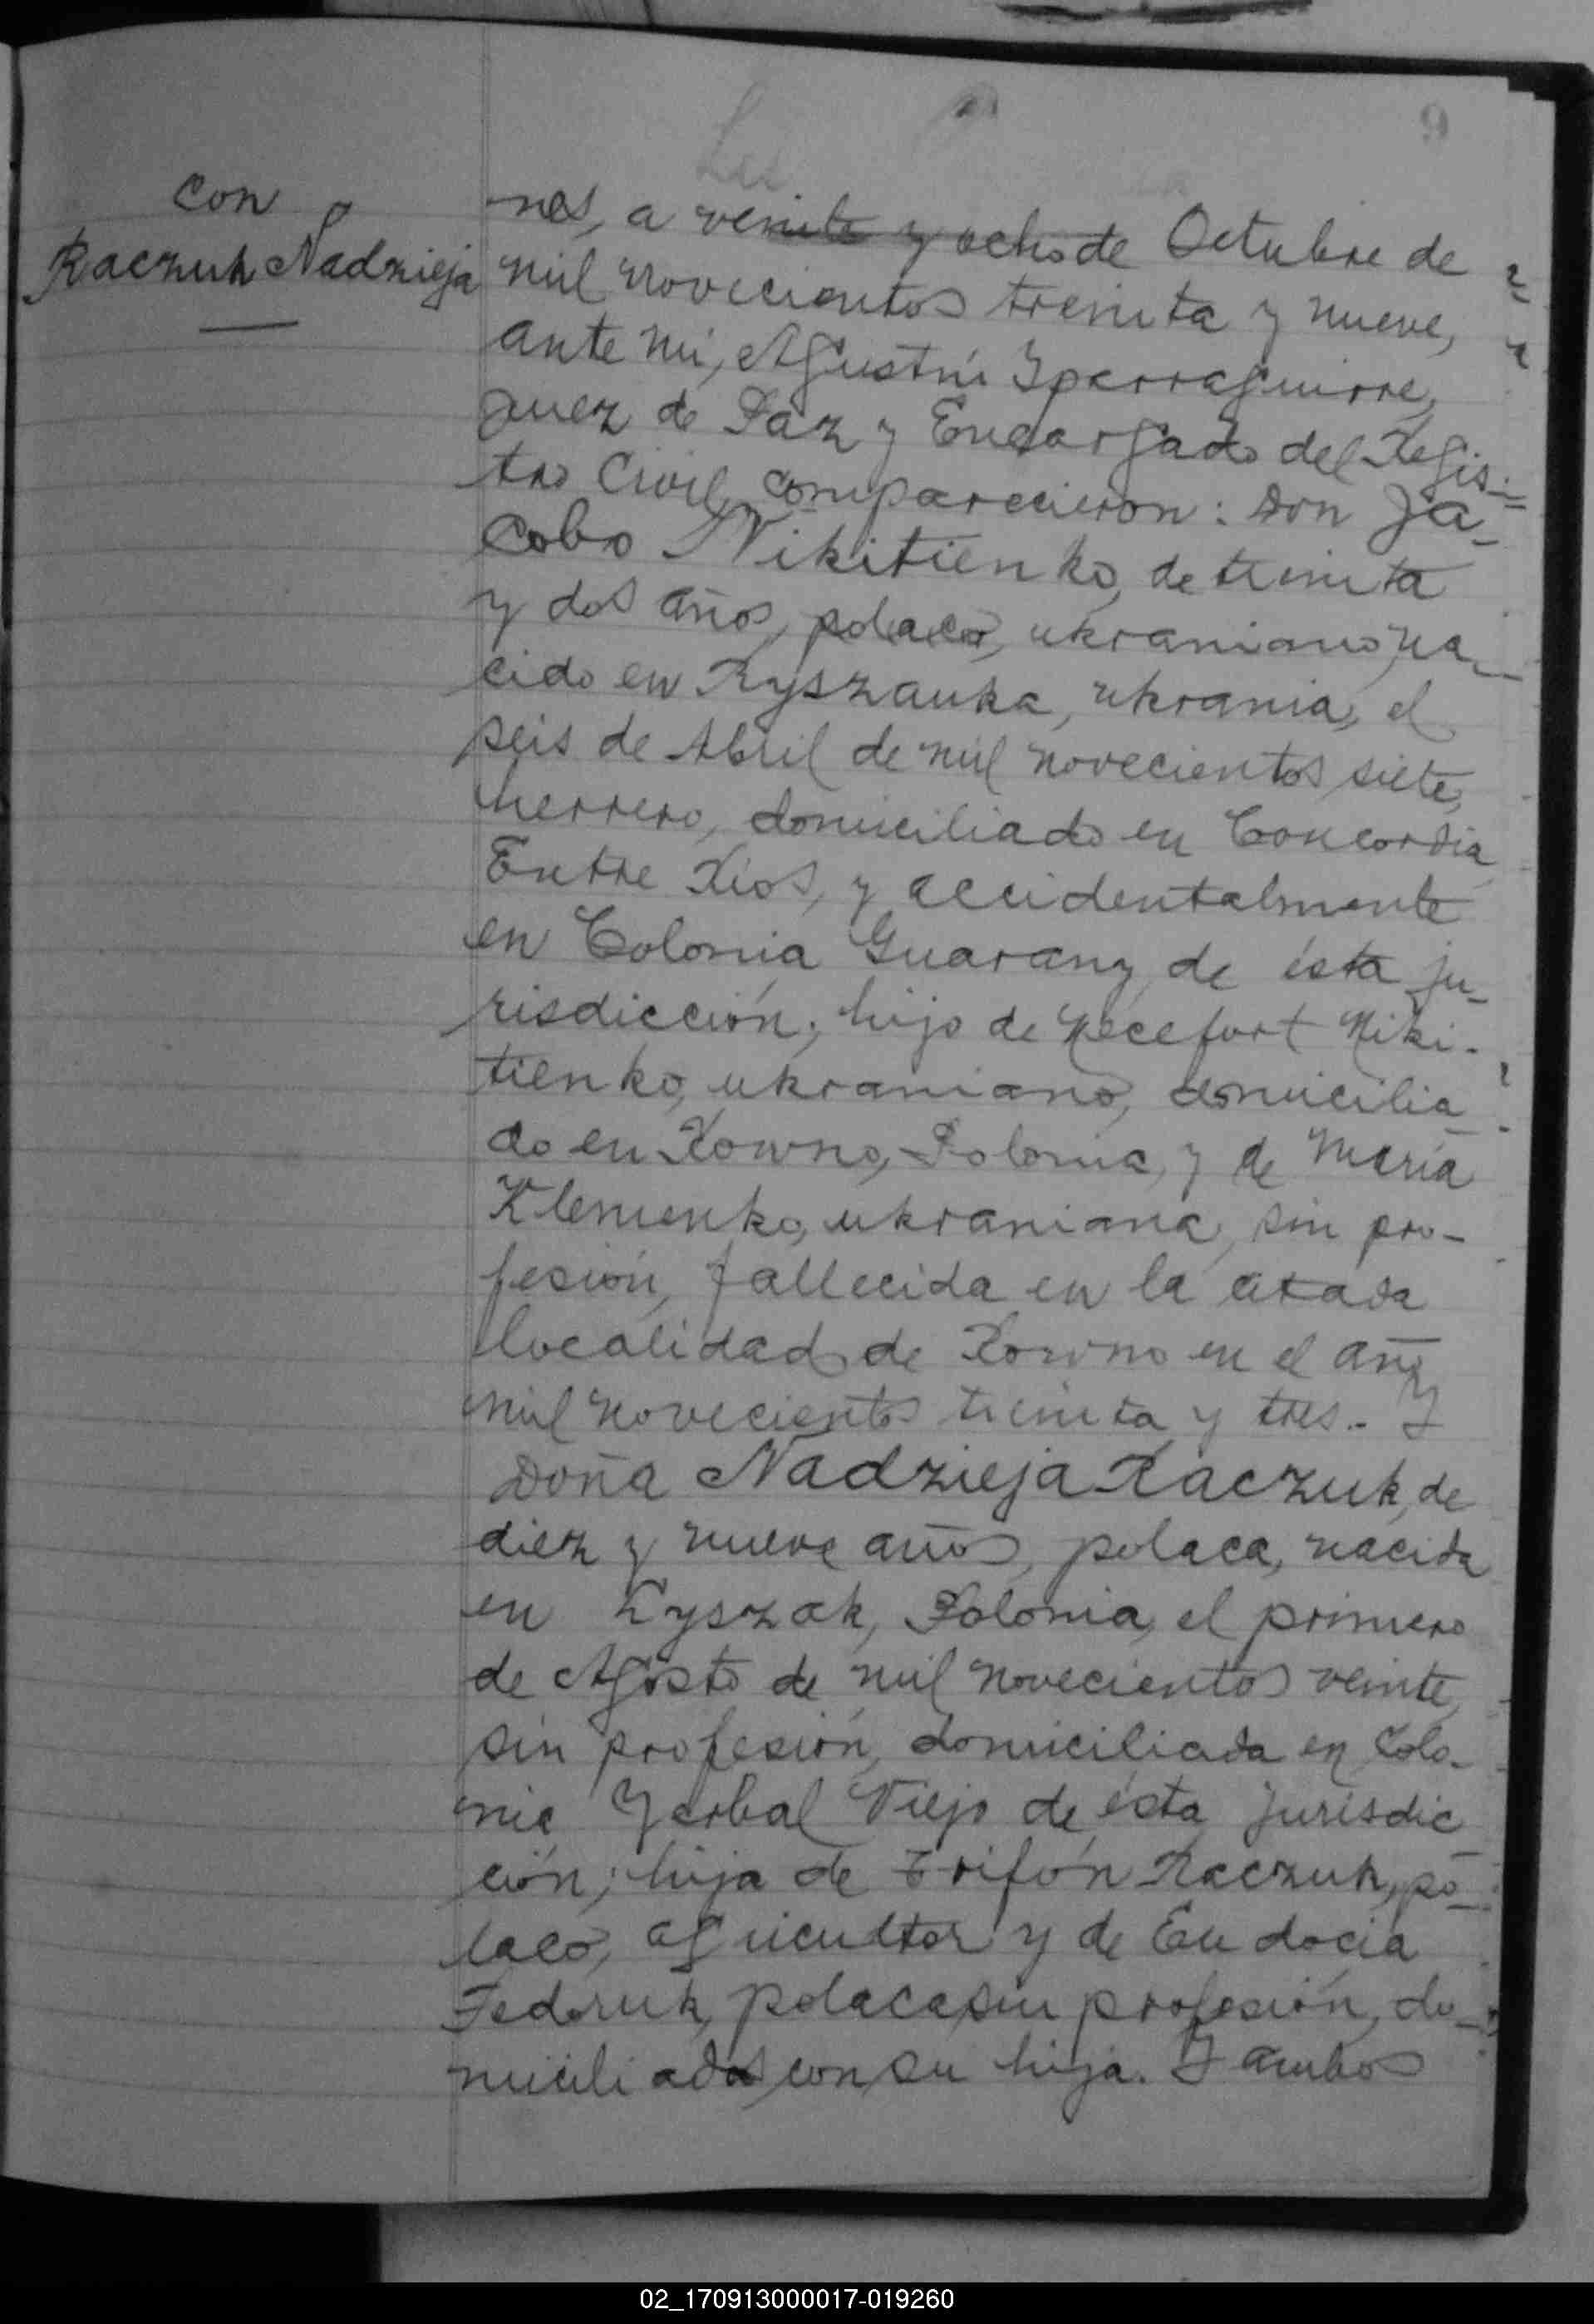 9
con
Raczuk Nadzieja
nes, a veinte y ocho de Octubre de
mil novecientos treinta y nueve,
ante mi, Agustín Yparraguirre,
Juez de Paz y Encargado del Regis-
tro Civil, comparecieron: Don Ja-
cobo Nikitienko, de treinta
y dos años, polaco, ukraniano, na-
cido en Ryszauka, ukrania, el
seis de Abril de mil novecientos siete,
herrero, domiciliado en Concordia,
Entre Rios, y accidentalmente
en Colonia Guarany, de ésta ju-
risdicción; hijo de Necefort Niki-
tienko, ukraniano, domicilia-
do en Rowno, Polonia, y de María
Klemenko, ukraniana, sin pro-
fesión, fallecida en la citada
localidad de Rowno en el año
mil novecientos treinta y tres.- Y
Doña Nadzieja Raczuk, de
diez y nueve años, polaca, nacida
en Ryszak, Polonia, el primero
de Agosto de mil novecientos veinte,
sin profesión, domiciliada en Colo-
nia Yerbal Viejo de ésta jurisdic
ción; hija de Trifón Raczuk, po-
laco, agricultor y de Eudocia
Fedoruk, polaca, sin profesión, do-
miciliados con su hija. Y ambos
02_170913000017-019260